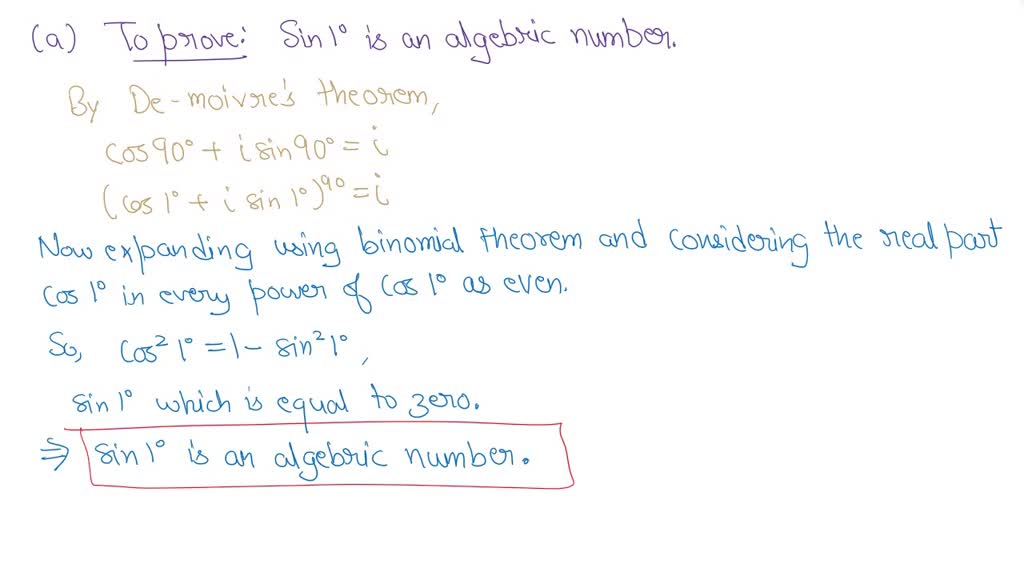 (a) To prove: Sin 1° is an algebric number.
By De-moivre's theorem,
cos 90° + i sin 90° = i
(cos 1° + i sin 1°)⁹⁰ = i
Now expanding using binomial theorem and considering the real part
cos 1° in every power of cos 1° as even.
So, cos² 1° = 1 - sin² 1°,
sin 1° which is equal to zero.
⇒ sin 1° is an algebric number.